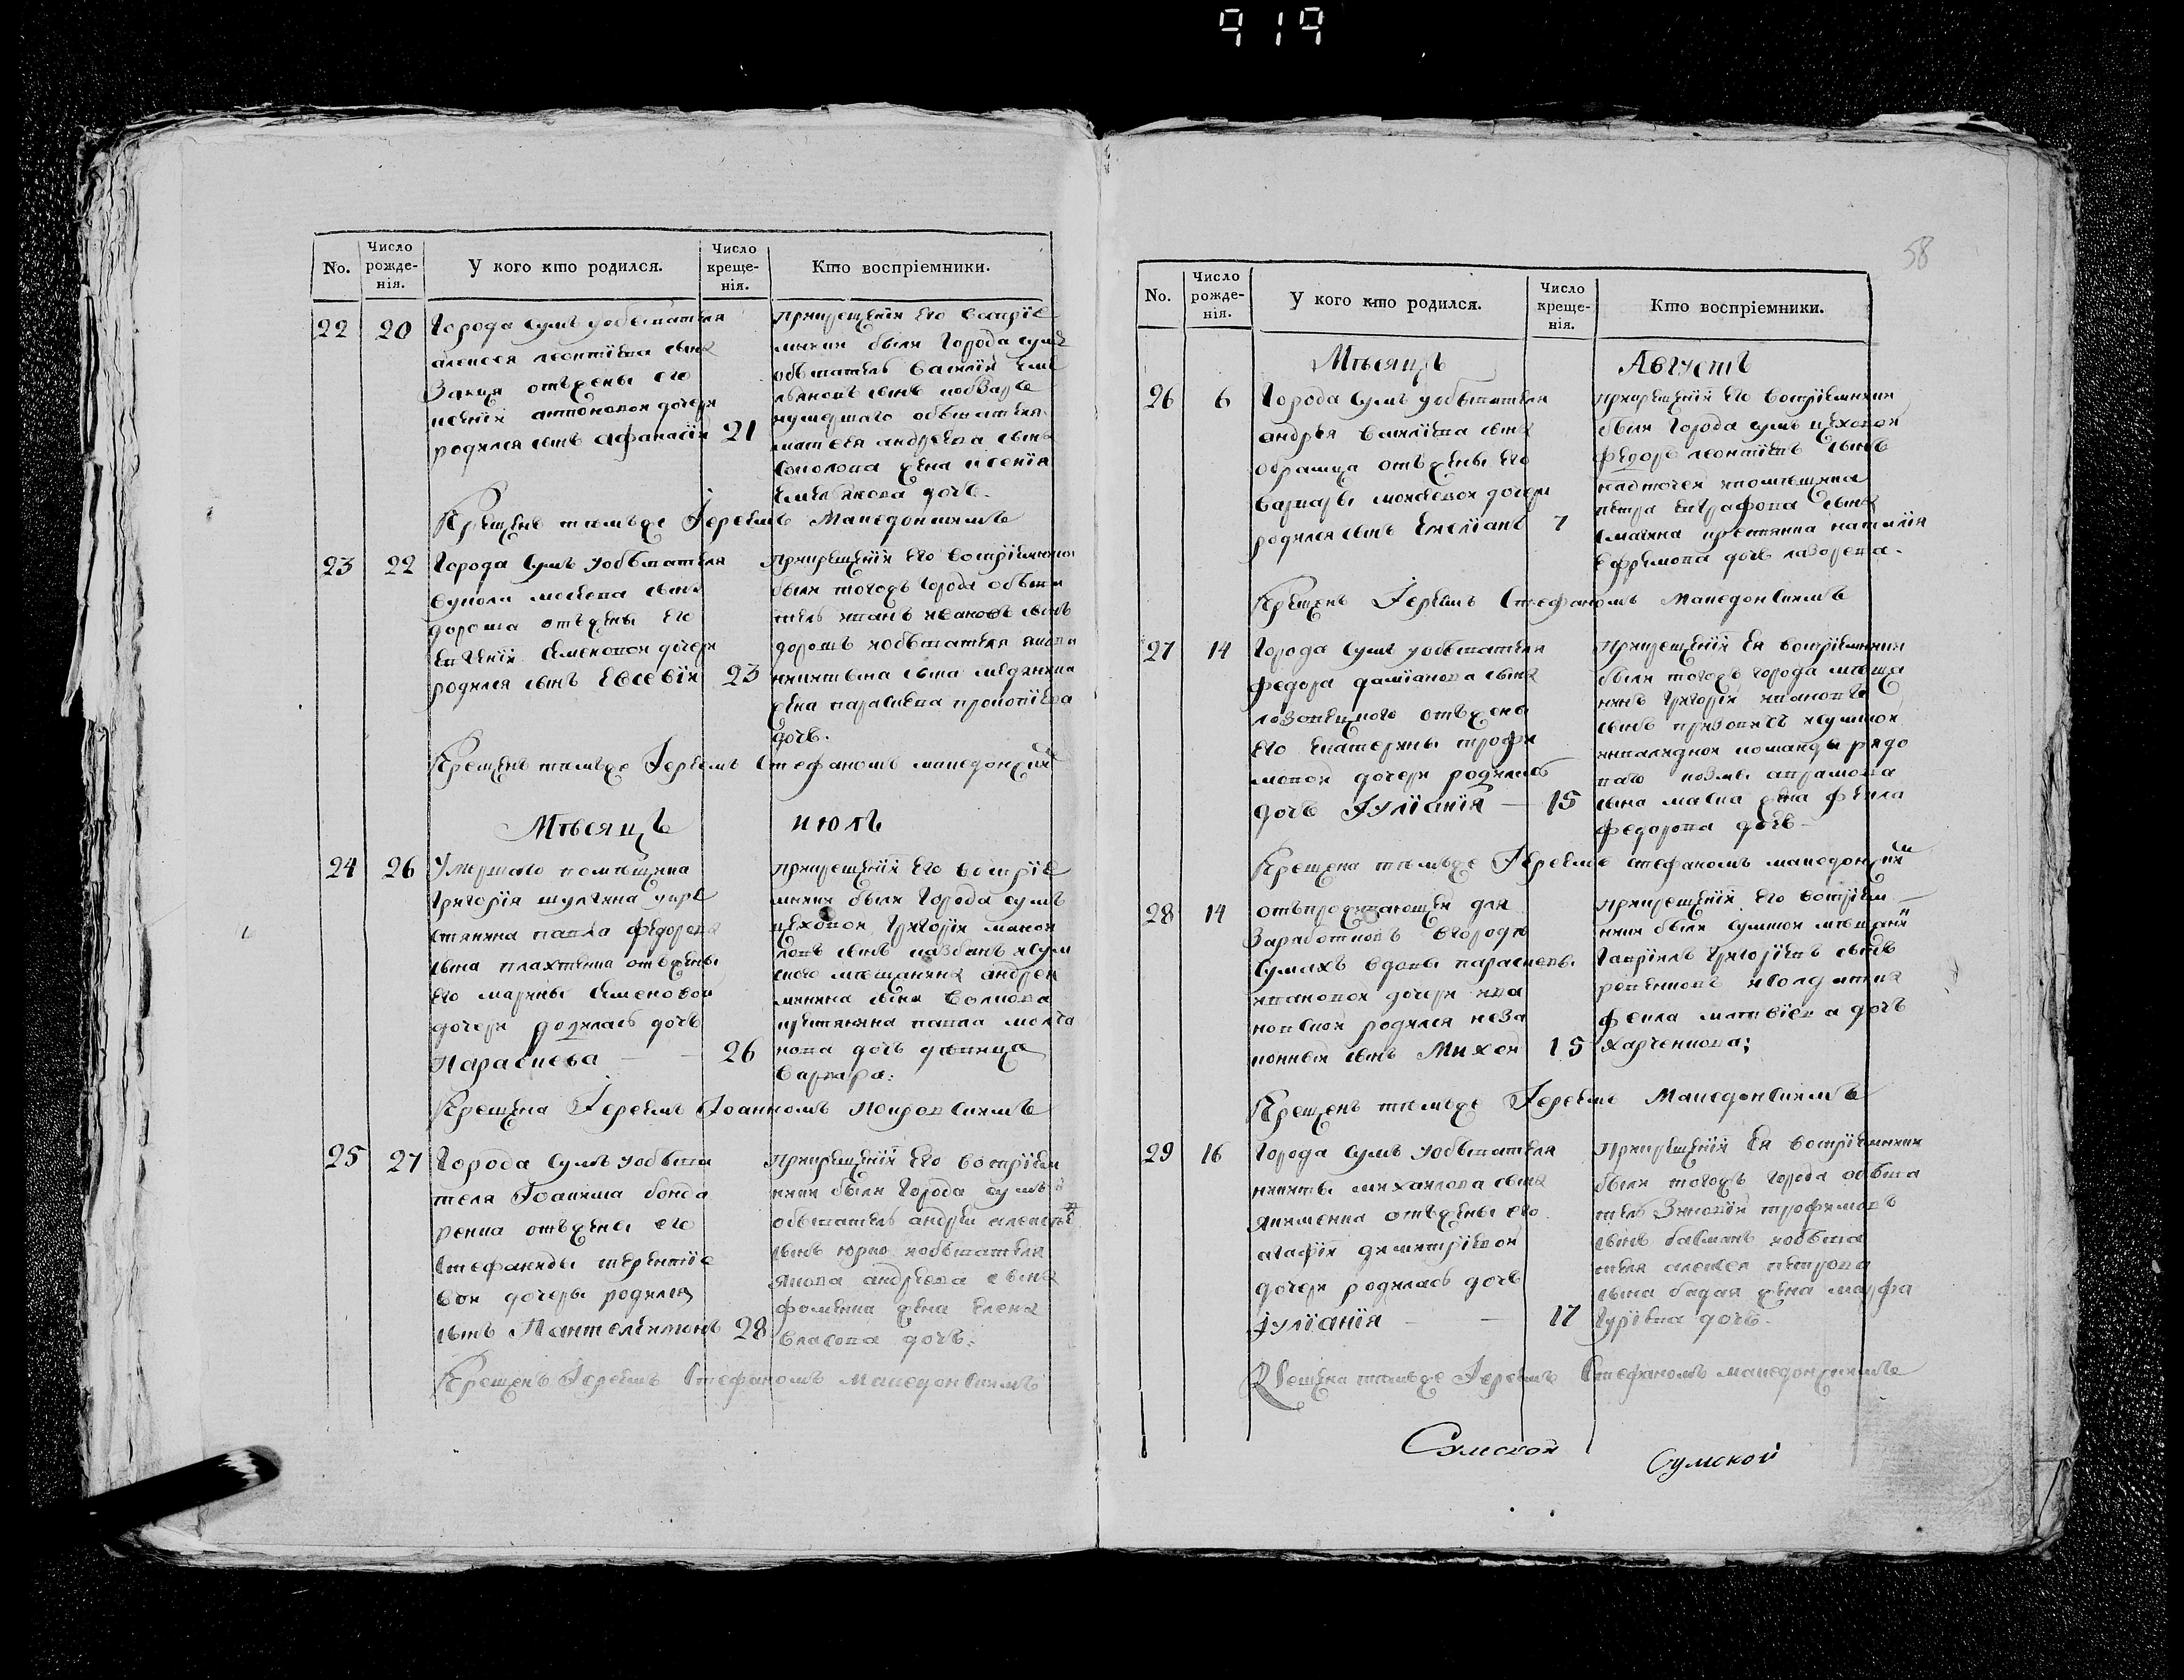 919
58
No.
Число рожде-нія.
У кого кто родился.
Число креще-нія.
Кто воспріемники.
22 20 Города Сумъ уобывателя
алексея леонтіева сына
Заица отъжены его
ксеніи антоновои дочери
родился сынъ Афанасіи 21
прикрещеніи его воспріе
мники были Города сумъ
обыватель Василіи Еме
льяновъ сынъ
иумершаго обывателя
матвея андреева сына
Соколова жена ксенія
Емельянова дочь.
Крещенъ темъже Іереемъ Македонскимъ
23 22 Города Сумъ уобывателя
сына
дороша отъжены его
Евгеніи Семеновои дочери
родился сынъ Евсевіи 23
прикрещеніи его воспріемники
были тогожъ Города обыва
тель иванъ ивановъ сынъ
дорошъ иобывателя якова
никитина сына медяника
жена параскева прокопіева
дочь.
Крещенъ темъже Іереемъ Стефаномъ македонским
Мѣсяцъ июль
24 26 Умершаго помещика
Григорія шулгина укре
стянина павла Федорова
сына плахтина отъжены
Его марины Семеновои
дочери родилась дочь
Параскева — — 26
прикрещеніи Его воспріе
мники были Города сумъ
цеховои Григоріи мано
иловъ сынъ иСум
ского мещанина андрея
минина сына Волкова
крестянина павла
дочь девица
варвара:
Крещена Іереемъ Іоанномъ Покровскимъ
25 27 Города Сумъ уобыва
теля Іоакима бонда
ренка отъжены его
Стефаниды терентіе
вои дочеры родился
сынъ Пантелеимонъ 28
прикрещеніи Его воспріем
ники были Города сумъ
обыватель андреи алексеевъ
сынъ юрко иобывателя
якова андреева сына
фоменка жена Елена
Власова дочь:
Крещенъ Іереемъ Стефаномъ Македонскимъ
No.
Число рожде-нія.
У кого кто родился.
Число креще-нія.
Кто воспріемники.
Мѣсяцъ Августъ
26 6 Города Сумъ уобывателя
андрея Василіева сына
образца отъжены его
варвары моисеевои дочери
родился сынъ Емеліанъ 7
прикрещеніи Его воспріемники
были Города сумъ цеховои
Федоръ леонтіевъ сынъ
ипомещика
петра Евграфова сына
крестянка наталія
Ефремова дочь лазорева.
Крещенъ Іереемъ Стефаномъ Македонскимъ
27 14 Города Сумъ уобывателя
федора даміанова сына
лозовецкого отъжены
его Екатерины трофи
мовои дочери родилась
дочь Іуліанія — 15
прикрещеніи Ея воспріемники
были тогожъ города меща
нинъ Григоріи ивановъ
сынъ исумской
инвалиднои команды рядо
ваго козмы аврамова
сына жена фекла
федорова дочь —
Крещена темъже Іереемъ стефаномъ македонским
28 14 отъпроживающеи для
Заработковъ вгороде
Сумахъ вдовы параскевы
ивановои дочери ива
новскои родился неза
коннои сынъ Михеи 15
прикрещеніи его воспріем —
ники были сумскои мещанин
Гавріилъ Григоріевъ сынъ
исолдатка
фекла матвіева дочь
Харченкова;
Крещенъ темъже Іереемъ Македонскимъ
29 16 Города Сумъ уобывателя
никиты михаилова сына
якименка отъжены его
агафіи димитріевои
дочери родилась дочь
Іуліанія — — 17
Прикрещеніи Ея воспріемники
были тогожъ города обыва
тель Зиновіи трофимовъ
сынъ бавманъ иобыва
теля алексея петрова
сына жена марфа
Гуріева дочь.
Крещена темъже Іереемъ Стефаномъ македонскимъ
Сумской Сумской